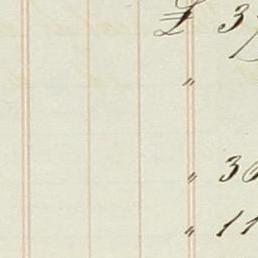 £ 3
"
" 36
" 11